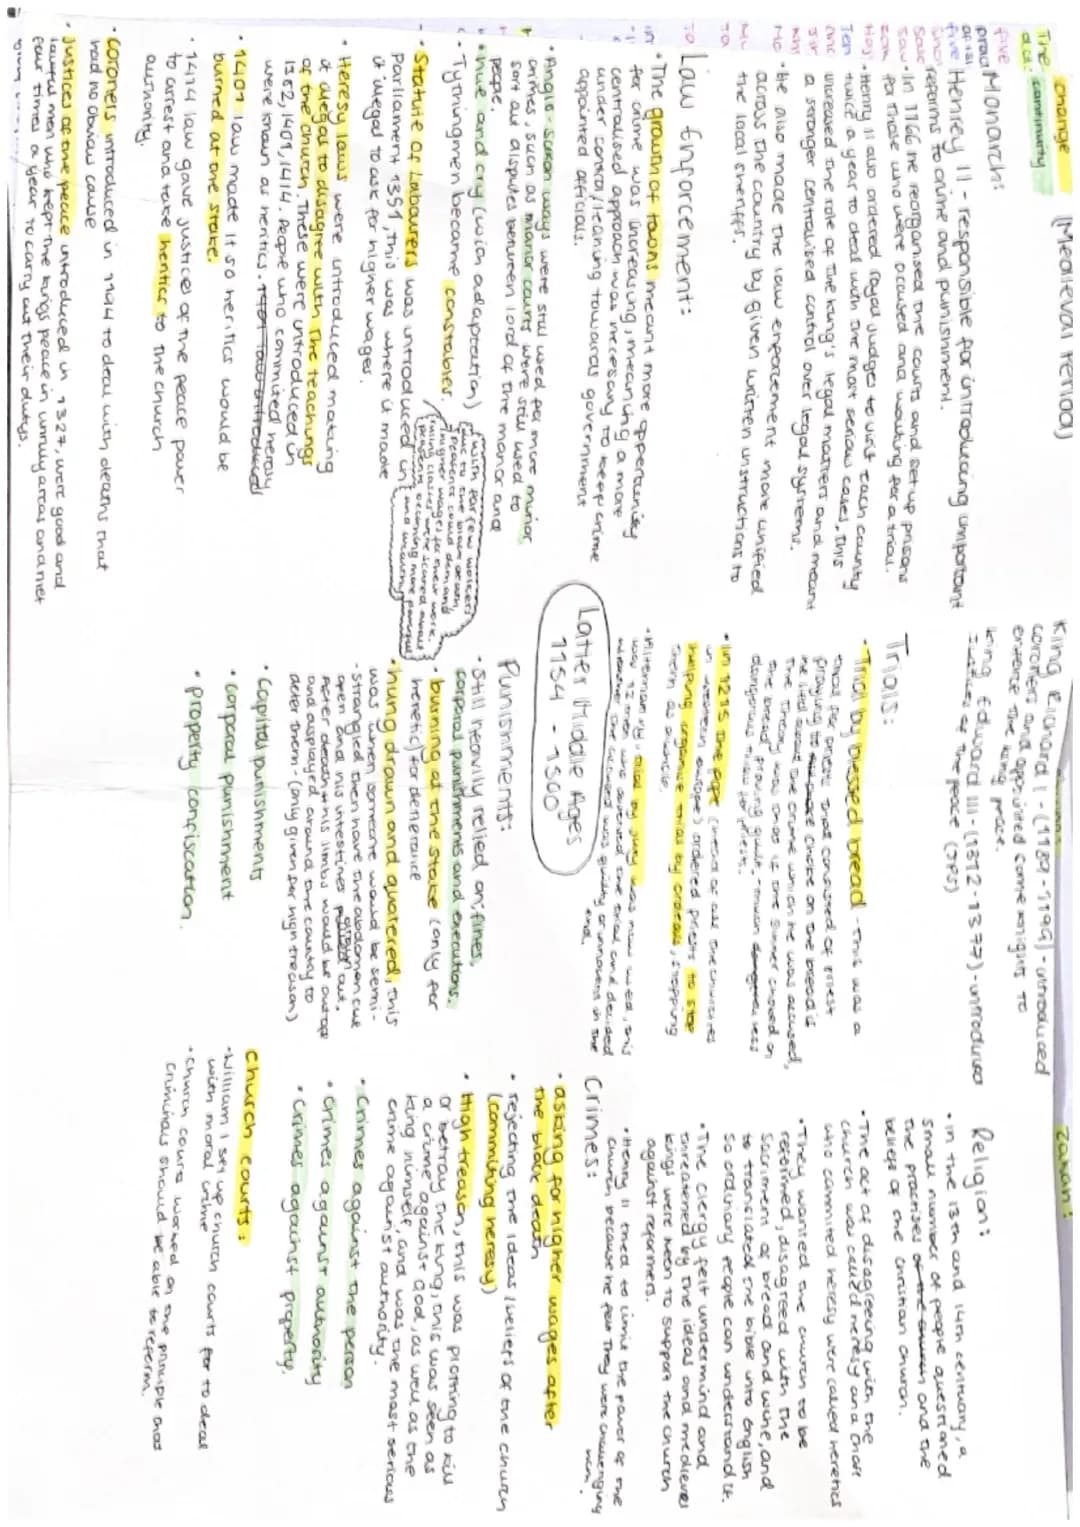 The change
dca: continuity
(Medieval Period)
Zakan:
five
Monarch:
Henrey II - responsible for introducing important
reforms to crime and punishment.
• In 1166 he reorganised the courts and set up prisons
for those who were accused and waiting for a trial.
• Henry II also ordered royal judges to visit each county
twice a year to deal with the most serious cases, this
increased the role of the king's legal matters and meant
a stronger centralised control over legal systems.
• He also made the law enforcement more unified
across the country by given written instructions to
the local sheriffs.
Law enforcement:
• The growth of towns meant more oppertunity
for crime was increasing, meaning a more
centralised approach was necessary to keep crime
under control/leaning towards government
appointed officials.
• Anglo-Saxon ways were still used for more minor
crimes, such as manor courts were still used to
sort out disputes between lord of the manor and
people.
• hue and cry (with adaptation)
• Tythingmen became constables.
• Statute of Labourers was introduced in
Parliament 1351, this was where it made
it illegal to ask for higher wages.
with far few workers
due to the black death,
peasents could demand
higher wages for their work.
ruling classes were scared about
peasents becoming more powerful
• Heresy laws were introduced making
it illegal to disagree with the teachings
of the church, these were introduced in
1382, 1401, 1414. People who commited heresy
were known as heritics.
• 1401 law made it so heritics would be
burned at one stake.
• 1414 law gave justice of the peace power
to arrest and take heritics to the church
authority.
• coroners introduced in 1194 to deal with deaths that
had no obvious cause
• Justices of the peace introduced in 1327, were good and
lawful men who kept the kings peace in unruly areas and met
four times a year to carry out their dutys.
King Richard I - (1189-1199) - introduced
coroners and appointed some knights to
enforce the kings peace.
King Edward III - (1312-1377) - introduced
Justices of the peace (JPs)
Trials:
• Trial by blessed bread - this was a
trial for priest that consisted of priest
praying to choke on the bread if
he lied about the crime which he was accused,
the theory was that if the sinner chewed on
the bread proving guilt.
• In 1215 the pope (head of all the churches
in western europe) ordered priests to stop
helping organise trials by ordeals, stopping
them as a whole.
• trial by jury was now used, this
was 12 men who the trial and decided
the accused was guilty or innocent in the
end.
Latter Middle Ages
1154 - 1500
Punishments:
• Still heavily relied on fines,
corporal punishments and executions.
• burning at the stake (only for
heretic) for deneraice
• hung drawn and quatered, this
was when someone would be semi-
strangled then have the abdomen cut
open and his intestines out.
After death his limbs would be cut off
and displayed around the country to
deter them - (only given for high treason)
• Capital punishments
• Corporal punishment
• property confiscation.
Religion:
• in the 13th and 14th centuary, a
small number of people questioned
the practises and the
beliefs of the christian church.
• The act of disagreeing with the
church was called heresy and those
who commited heresy were called heretics
• They wanted the church to be
reformed, disagreed with the
sacrament of bread and wine, and
to translated the bible into English
so ordinary people can understand it.
• The clergy felt undermind and
threatened by the ideas and medieval
kings were keen to support the church
against reformers.
• Henry II tried to limit the power of the
church because he felt they were challenging
him.
Crimes:
• asking for higher wages after
the black death
• rejecting the ideas/beliefs of the church
(commiting heresy)
• High treason, this was plotting to kill
or betray the king, this was seen as
a crime against God, as well as the
king himself, and was the most serious
crime against authority.
• Crimes against the person
• crimes against authority
• Crimes against property.
Church courts:
• William I set up church courts for to deal
with moral crime
• Church courts worked on the principle that
criminals should be able to reform.